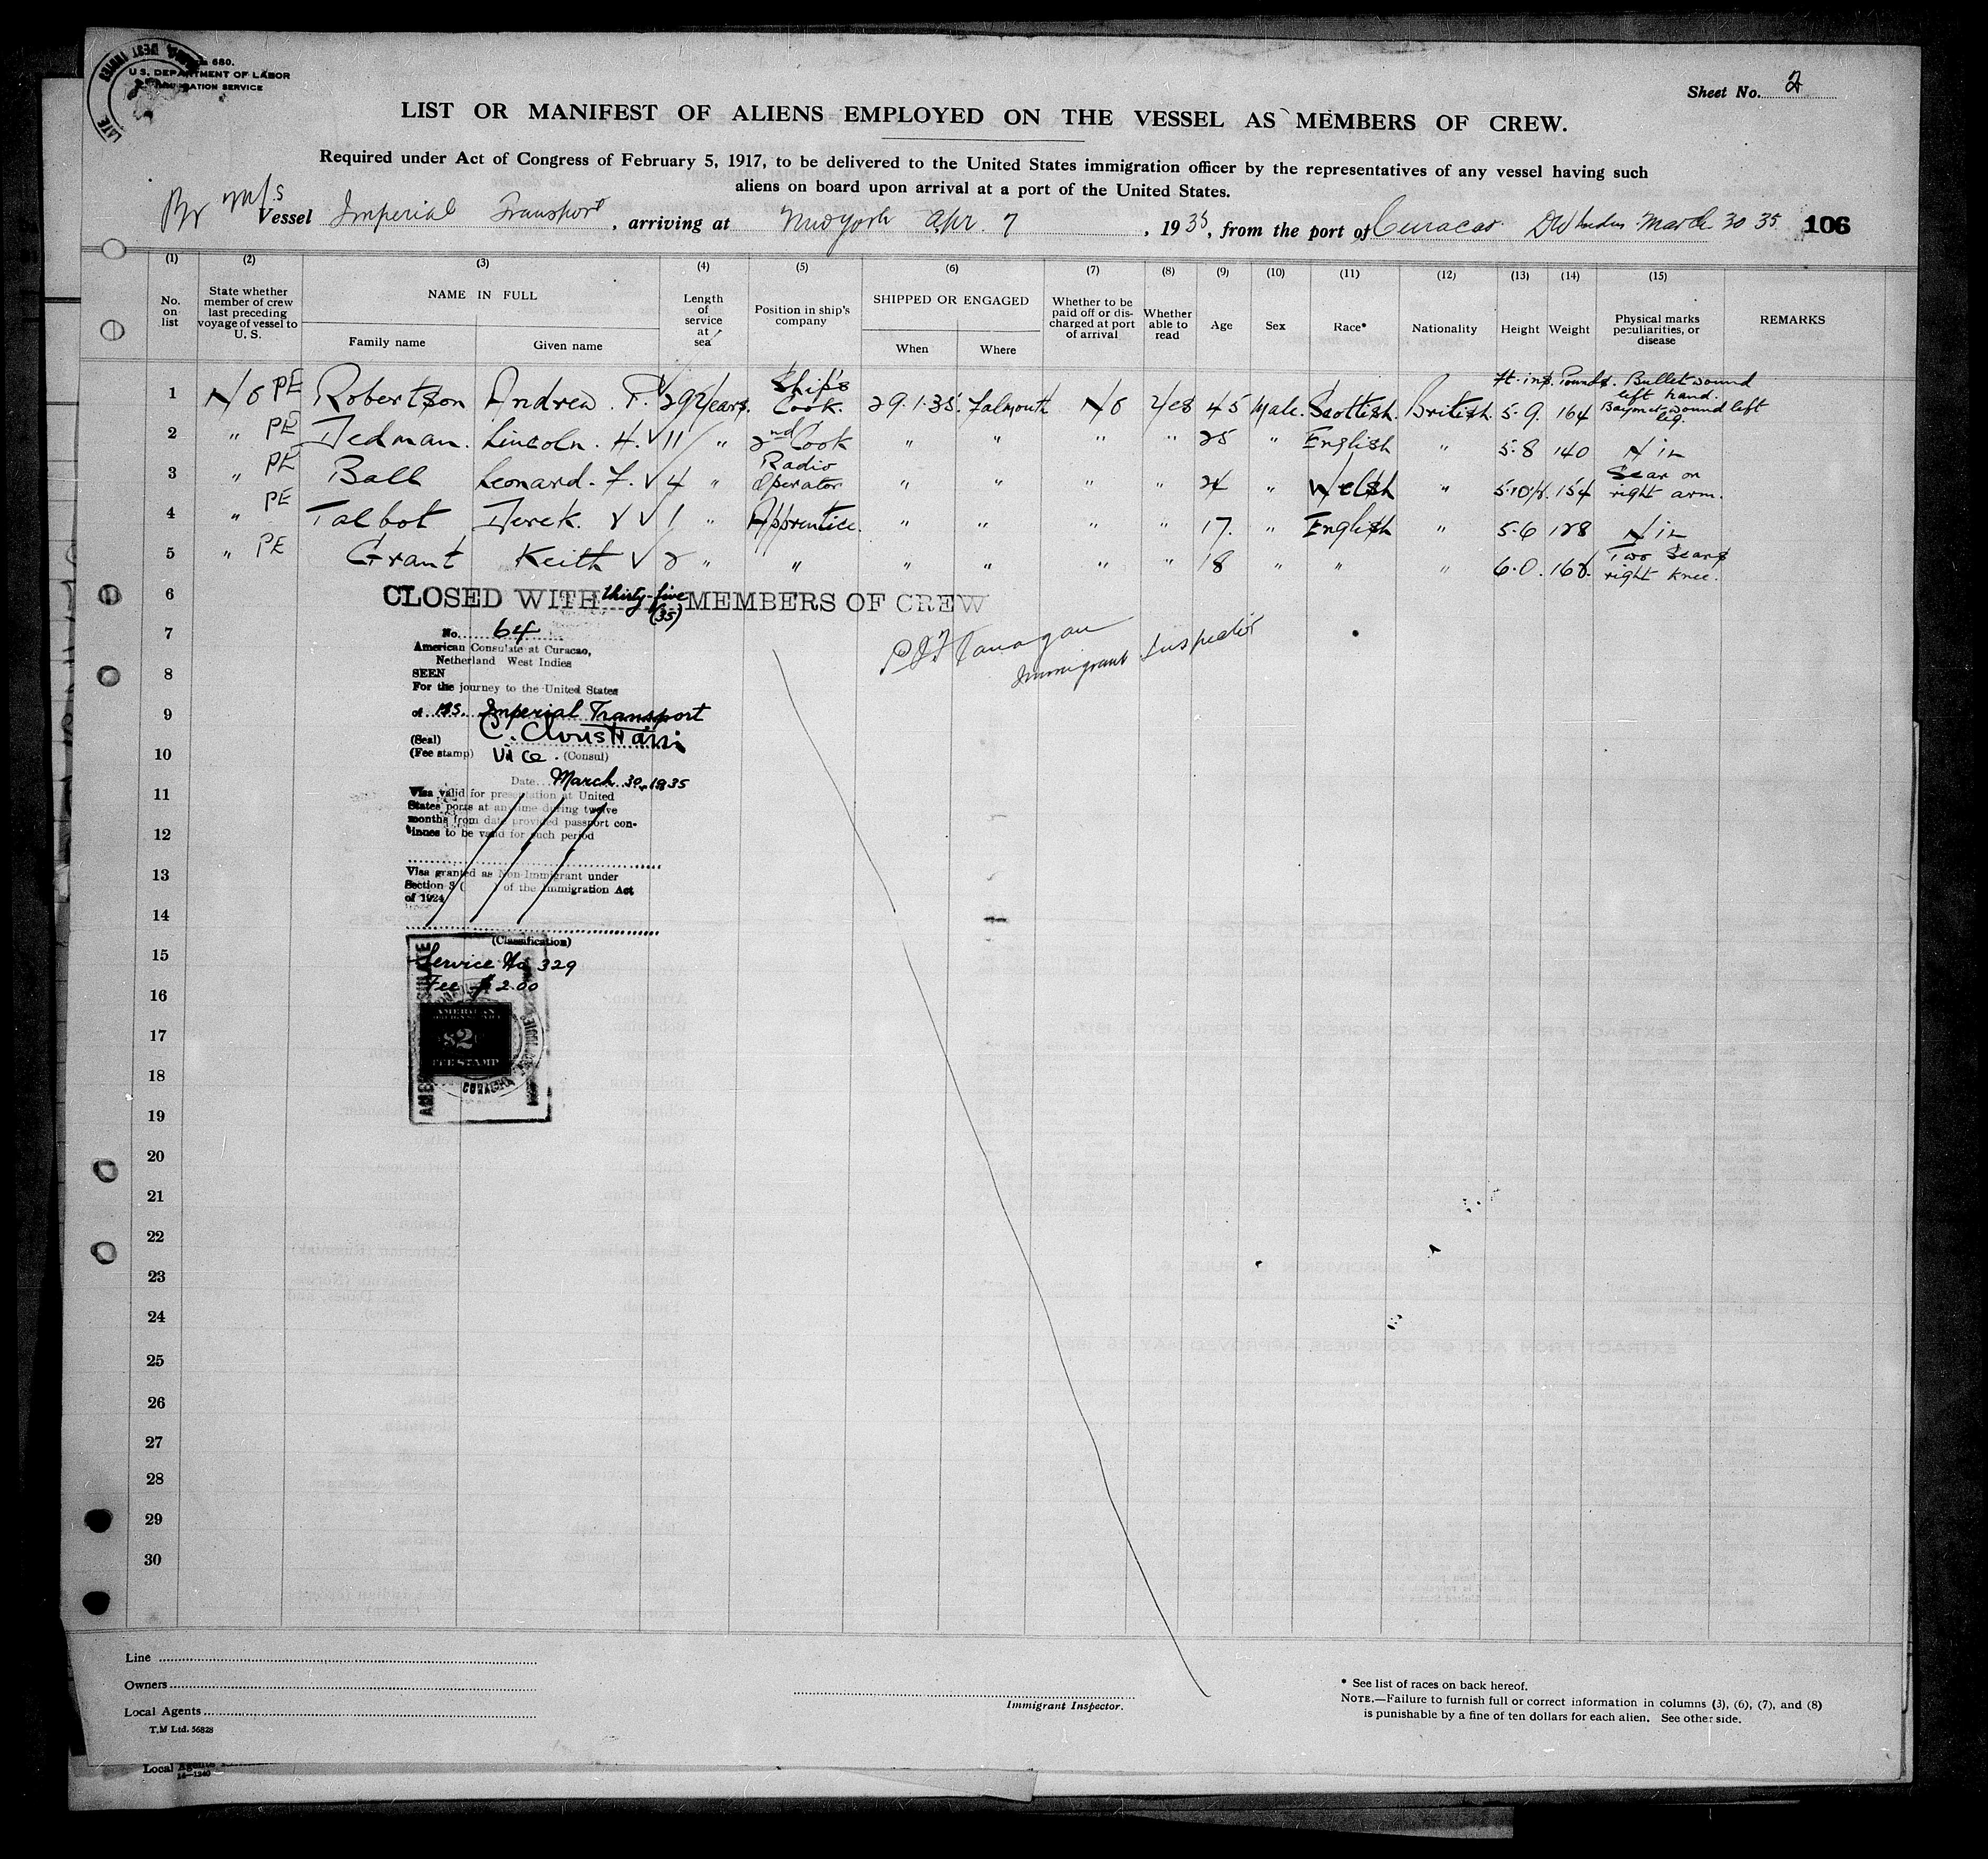 680.
U.S. DEPARTMENT OF LABOR
IMMIGRATION SERVICE
Sheet No. 2
LIST OR MANIFEST OF ALIENS EMPLOYED ON THE VESSEL AS MEMBERS OF CREW.
Required under Act of Congress of February 5, 1917, to be delivered to the United States immigration officer by the representatives of any vessel having such
aliens on board upon arrival at a port of the United States.
Br M/s Vessel Imperial Transport, arriving at New York Apr. 7, 1935, from the port of Curacao DW Indies March 30 35 106
(1) (2) (3) (4) (5) (6) (7) (8) (9) (10) (11) (12) (13) (14) (15)
No. on list State whether member of crew last preceding voyage of vessel to U. S. NAME IN FULL Length of service at sea Position in ship's company SHIPPED OR ENGAGED Whether to be paid off or discharged at port of arrival Whether able to read Age Sex Race* Nationality Height Weight Physical marks peculiarities, or disease REMARKS
Family name Given name When Where
Ft. ins. Pounds.
1 No PE Robertson Andrew. P. 29 Years. Ship's Cook. 29.1.35. Falmouth No Yes 45 Male. Scottish. British. 5-9. 164 Bullet wound left hand. Bayonet wound left leg.
2 " PE Dedman. Lincoln. H. 11 " 2nd Cook " " " " 25 " English " 5-8 140 Nil
3 " PE Ball Leonard. F. 4 " Radio Operator " " " " 24 " Welsh " 5-10½. 154 Scar on right arm.
4 " PE Talbot Derek. 1 " Apprentice. " " " " 17. " English " 5-6 128 Nil
5 " PE Grant Keith 2 " " " " " " 18 " " " 6-0. 168. Two Scars right knee.
6 CLOSED WITH thirty-five (35) MEMBERS OF CREW
7
8
9
10
11
12
13
14
15
16
17
18
19
20
21
22
23
24
25
26
27
28
29
30
Flanagan
Immigrant Inspector
No. 64
American Consulate at Curacao,
Netherland West Indies
SEEN
For the journey to the United States
of M.S. Imperial Transport
(Seal) C. Christiani
(Fee stamp) Vice. (Consul)
Date March 30, 1935
Visa valid for presentation at United
States ports at any time during twelve
months from date provided passport con-
tinues to be valid for such period
Visa granted as Non-Immigrant under
Section 3 ( of the Immigration Act
of 1924
(Classification)
Service No 329
Fee $2.00
AMERICAN
$2
FEE STAMP
Line
Owners
Local Agents
T.M Ltd. 56828
Immigrant Inspector.
* See list of races on back hereof.
NOTE.—Failure to furnish full or correct information in columns (3), (6), (7), and (8)
is punishable by a fine of ten dollars for each alien. See other side.
Local Agents
14—1240